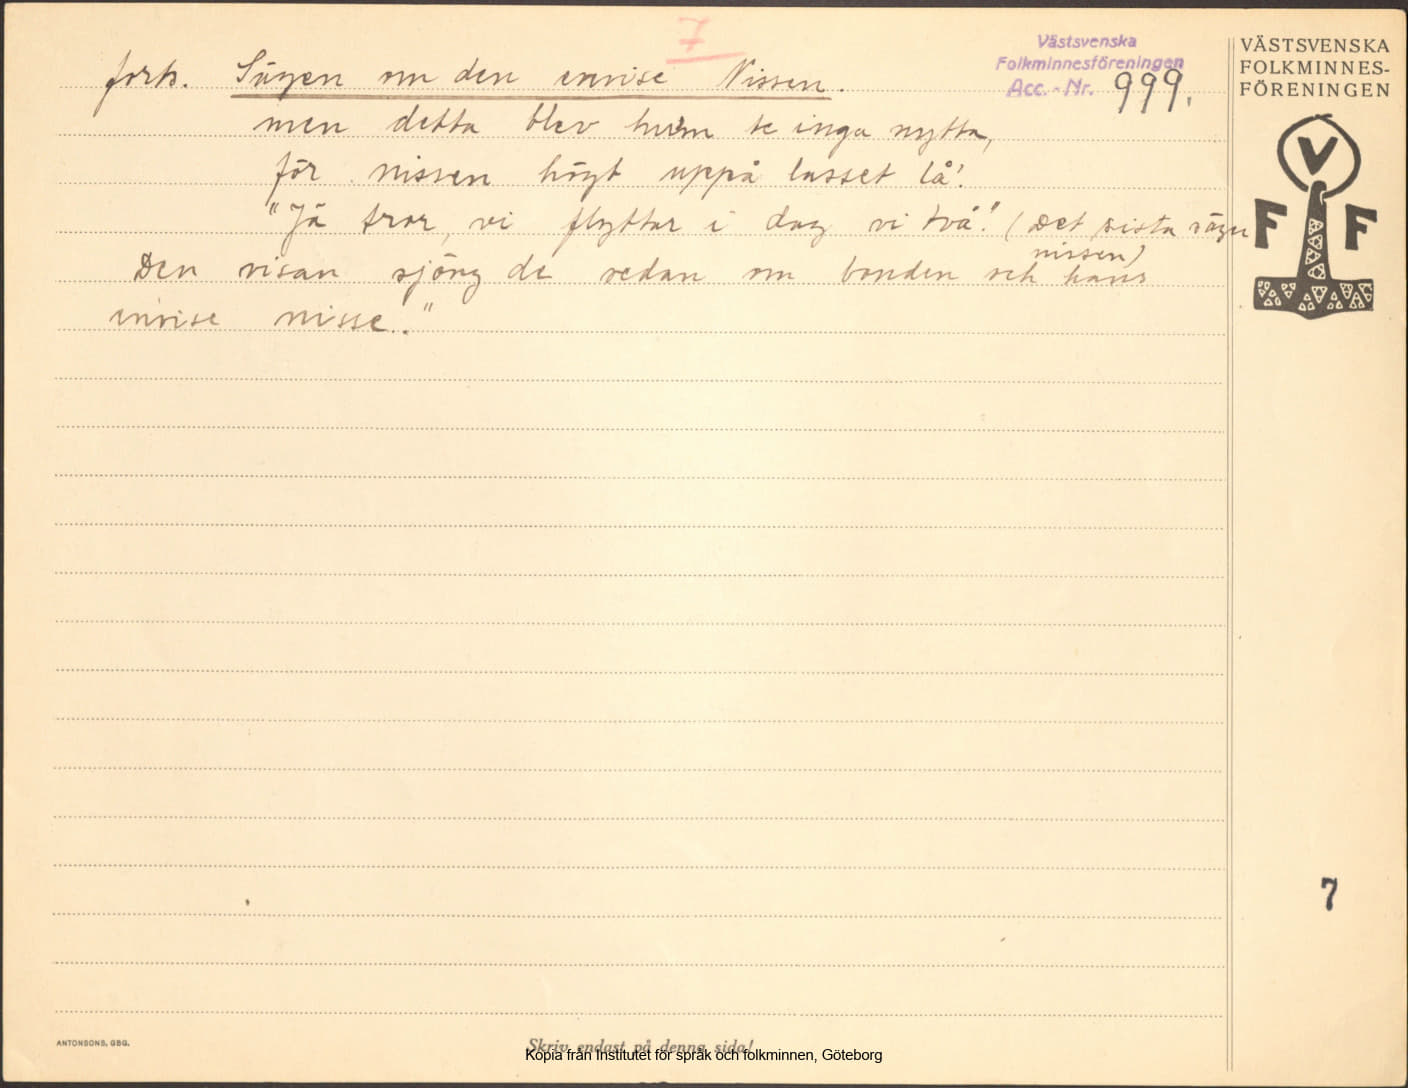 7
Västsvenska
Folkminnesföreningen
Acc.-Nr. 999.
VÄSTSVENSKA
FOLKMINNES-
FÖRENINGEN
V
F F
forts. Sägen om den envise Nissen.
men detta blev hum te inga nytta,
för nissen högt uppå lasset lå'.
"Jä tror, vi flyttar i dag vi två". (Det sista säger
nissen)
Den visan sjöng de sedan om bonden och hans
envise nisse."
7
ANTONSONS, GBG.
Skriv endast på denna sida!
Kopia från Institutet för språk och folkminnen, Göteborg